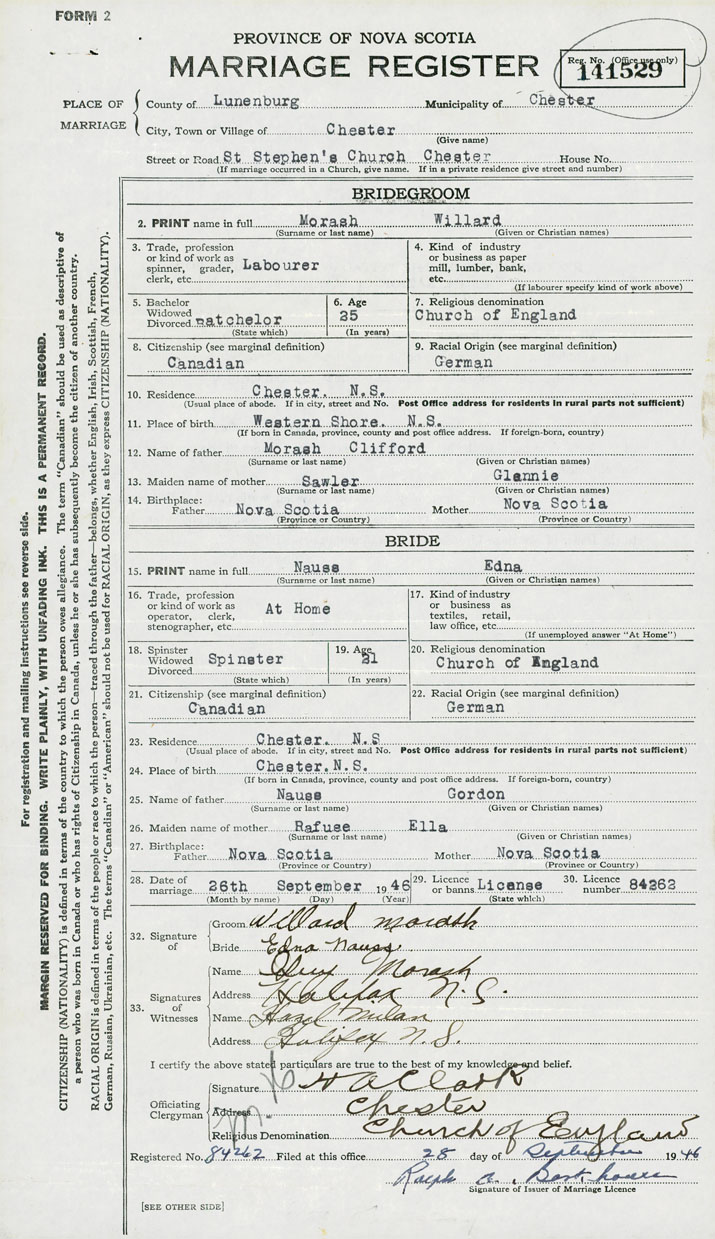 FORM 2
PROVINCE OF NOVA SCOTIA
MARRIAGE REGISTER
Reg. No. (Office use only)
141529
PLACE OF MARRIAGE
County of Lunenburg Municipality of Chester
City, Town or Village of Chester
(Give name)
Street or Road St Stephen's Church Chester House No.
(If marriage occurred in a Church, give name. If in a private residence give street and number)
BRIDEGROOM
2. PRINT name in full Morash Willard
(Surname or last name) (Given or Christian names)
3. Trade, profession or kind of work as spinner, grader, clerk, etc. Labourer
4. Kind of industry or business as paper mill, lumber, bank, etc.
(If labourer specify kind of work above)
5. Bachelor Widowed Divorced Batchelor
(State which)
6. Age 25
(In years)
7. Religious denomination
Church of England
8. Citizenship (see marginal definition)
Canadian
9. Racial Origin (see marginal definition)
German
10. Residence Chester. N.S.
(Usual place of abode. If in city, street and No. Post Office address for residents in rural parts not sufficient)
11. Place of birth Western Shore. N.S.
(If born in Canada, province, county and post office address. If foreign-born, country)
12. Name of father Morash Clifford
(Surname or last name) (Given or Christian names)
13. Maiden name of mother Sawler Glennie
(Surname or last name) (Given or Christian names)
14. Birthplace: Father Nova Scotia Mother Nova Scotia
(Province or Country) (Province or Country)
BRIDE
15. PRINT name in full Nauss Edna
(Surname or last name) (Given or Christian names)
16. Trade, profession or kind of work as operator, clerk, stenographer, etc. At Home
17. Kind of industry or business as textiles, retail, law office, etc.
(If unemployed answer "At Home")
18. Spinster Widowed Divorced Spinster
(State which)
19. Age 21
(In years)
20. Religious denomination
Church of England
21. Citizenship (see marginal definition)
Canadian
22. Racial Origin (see marginal definition)
German
23. Residence Chester. N.S
(Usual place of abode. If in city, street and No. Post Office address for residents in rural parts not sufficient)
24. Place of birth Chester.N.S.
(If born in Canada, province, county and post office address. If foreign-born, country)
25. Name of father Nauss Gordon
(Surname or last name) (Given or Christian names)
26. Maiden name of mother Rafuse Ella
(Surname or last name) (Given or Christian names)
27. Birthplace: Father Nova Scotia Mother Nova Scotia
(Province or Country) (Province or Country)
28. Date of marriage 26th September 1946
(Month by name) (Day) (Year)
29. Licence or banns License
(State which)
30. Licence number 84262
32. Signature of
Groom Willard Morash
Bride Edna Nauss
33. Signatures of Witnesses
Name Guy Morash
Address Halifax N.S.
Name Hazel
Address Halifax N.S.
I certify the above stated particulars are true to the best of my knowledge and belief.
Officiating Clergyman
Signature Clark
Address Chester
Religious Denomination Church of England
Registered No. 84262 Filed at this office 28 day of September 1946
Ralph a.
Signature of Issuer of Marriage Licence
[SEE OTHER SIDE]
For registration and mailing instructions see reverse side.
MARGIN RESERVED FOR BINDING. WRITE PLAINLY, WITH UNFADING INK. THIS IS A PERMANENT RECORD.
CITIZENSHIP (NATIONALITY) is defined in terms of the country to which the person owes allegiance. The term "Canadian" should be used as descriptive of
a person who was born in Canada or who has rights of Citizenship in Canada, unless he or she has subsequently become the citizen of another country.
RACIAL ORIGIN is defined in terms of the people or race to which the person—traced through the father—belongs, whether English, Irish, Scottish, French,
German, Russian, Ukrainian, etc. The terms "Canadian" or "American" should not be used for RACIAL ORIGIN, as they express CITIZENSHIP (NATIONALITY).